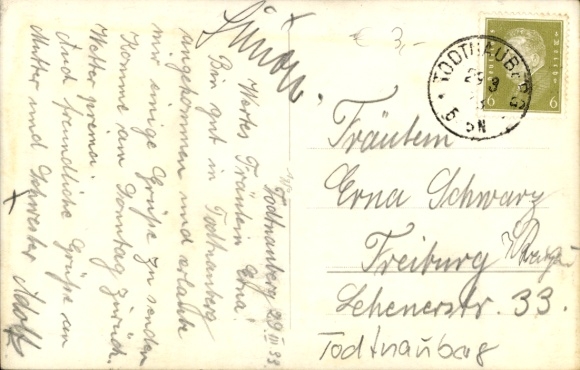 Todtnauberg 29.III.33.
Wertes Fräulein Erna!
Bin gut in Todtnauberg
angekommen und erlaube
mir einige Grüße zu senden
Komme am Sonntag zurück.
Wetter prima.
Und freundliche Grüße an
Mutter und Schwester Adolf
€ 3,-
TODTNAUBERG
29 3
5 6 N
6 6
Fräulein
Erna Schwarz
Freiburg
Lehenerstr. 33.
Todtnaubag